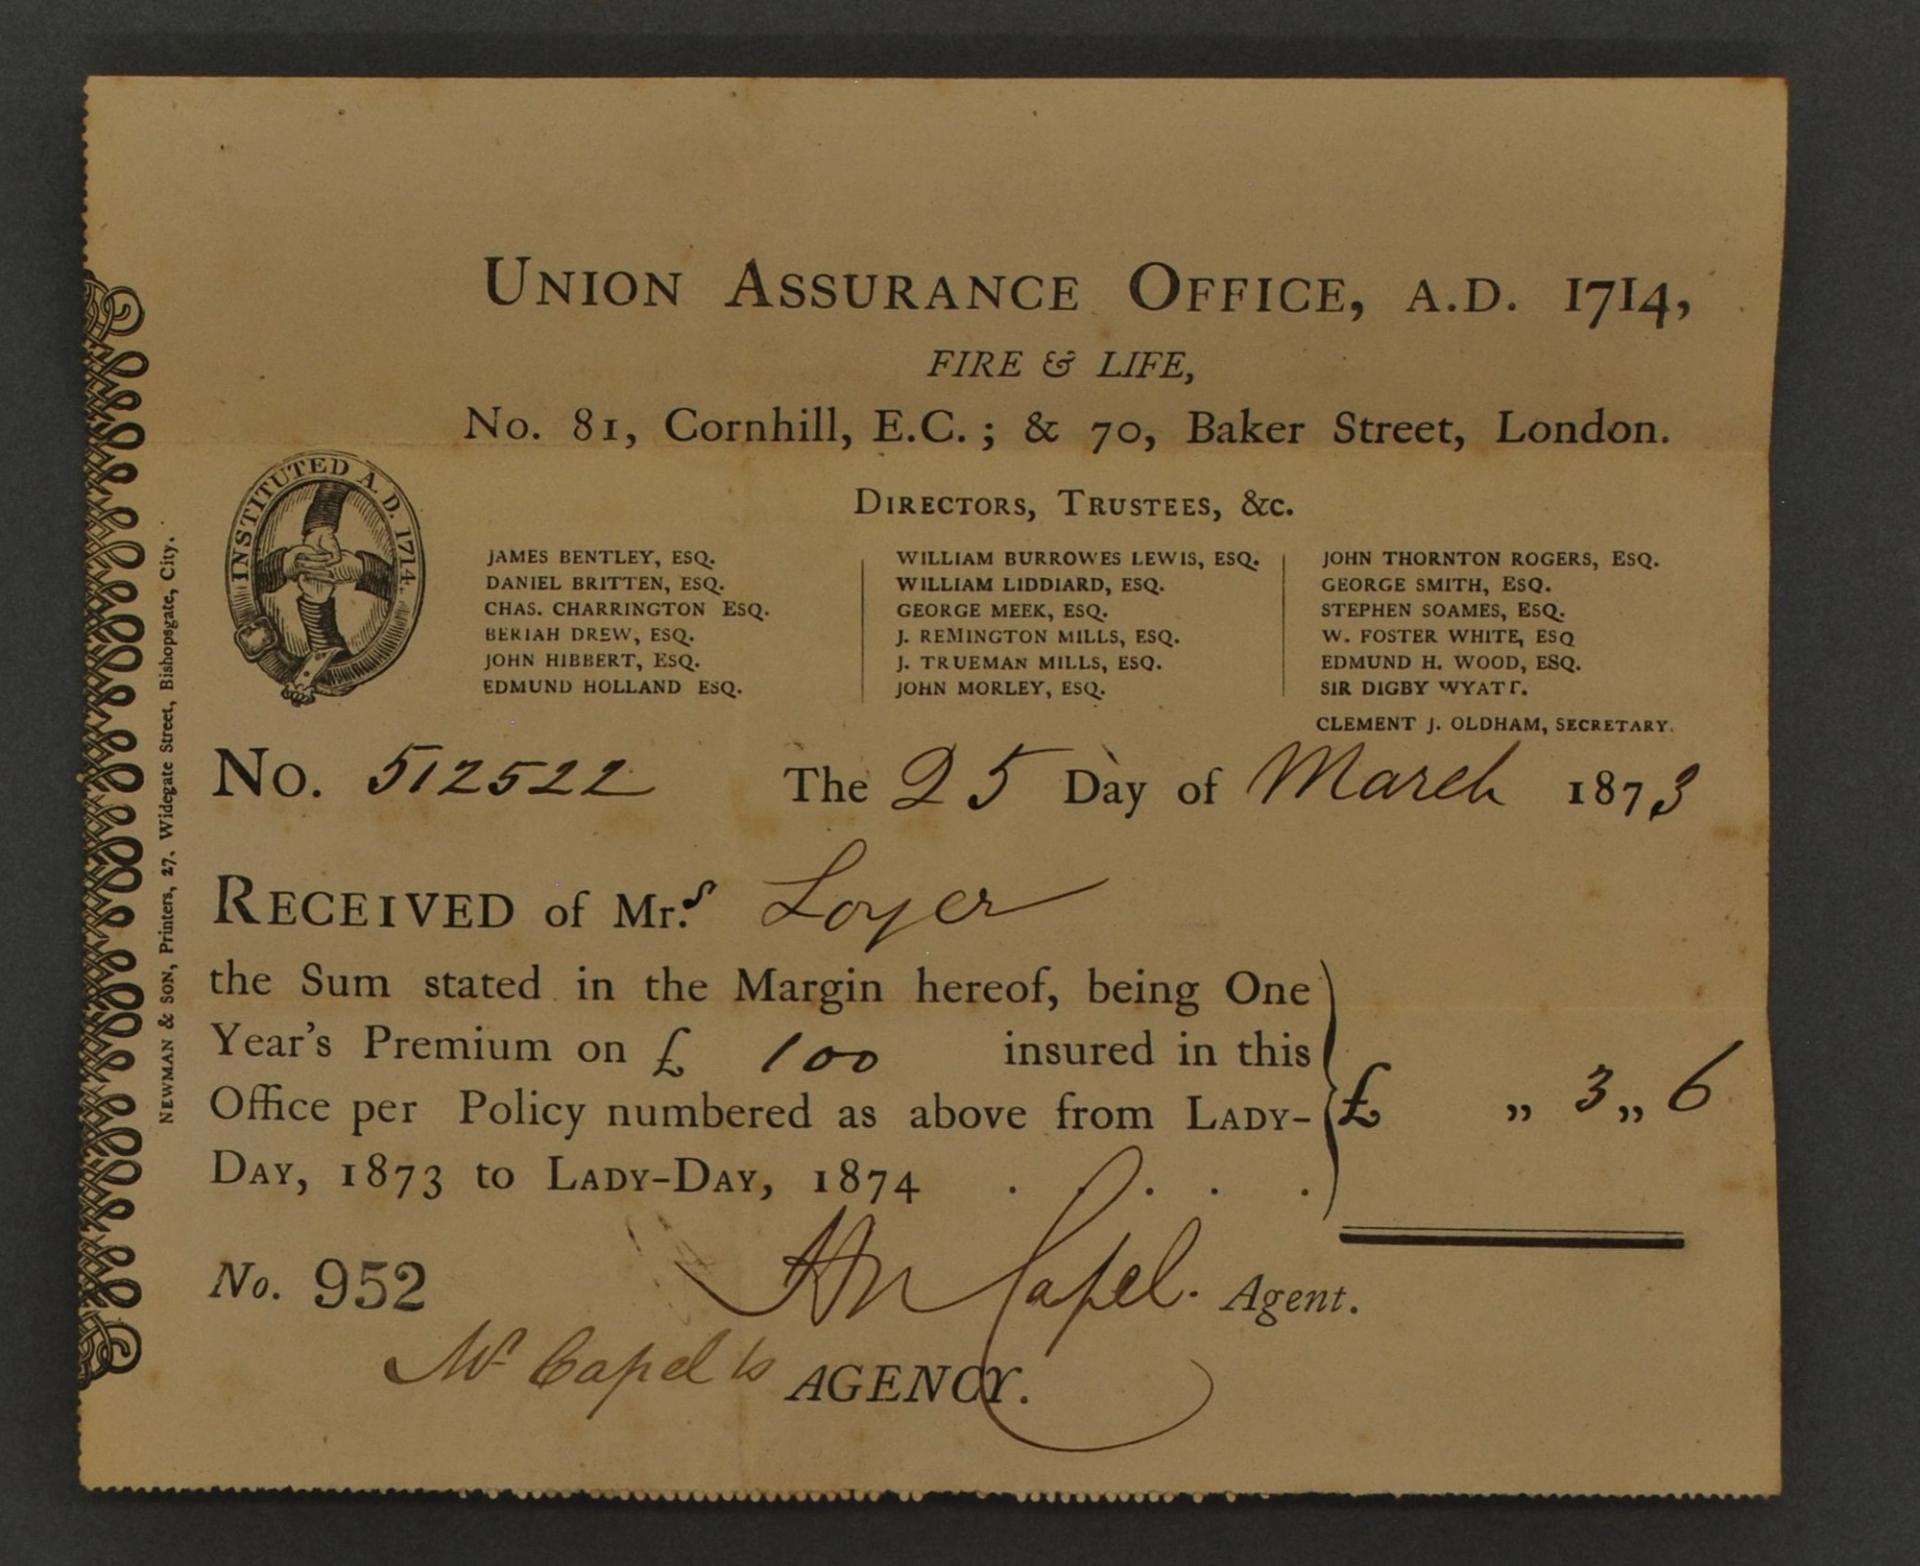 UNION ASSURANCE OFFICE, A.D. 1714,
FIRE & LIFE,
No. 81, Cornhill, E.C.; & 70, Baker Street, London.
INSTITUTED A.D. 1714.
DIRECTORS, TRUSTEES, &c.
JAMES BENTLEY, ESQ.
DANIEL BRITTEN, ESQ.
CHAS. CHARRINGTON ESQ.
BERIAH DREW, ESQ.
JOHN HIBBERT, ESQ.
EDMUND HOLLAND ESQ.
WILLIAM BURROWES LEWIS, ESQ.
WILLIAM LIDDIARD, ESQ.
GEORGE MEEK, ESQ.
J. REMINGTON MILLS, ESQ.
J. TRUEMAN MILLS, ESQ.
JOHN MORLEY, ESQ.
JOHN THORNTON ROGERS, ESQ.
GEORGE SMITH, ESQ.
STEPHEN SOAMES, ESQ.
W. FOSTER WHITE, ESQ
EDMUND H. WOOD, ESQ.
SIR DIGBY WYATT.
CLEMENT J. OLDHAM, SECRETARY.
No. 512522 The 25 Day of March 1873
RECEIVED of Mr.s Loyer
the Sum stated in the Margin hereof, being One
Year's Premium on £ 100 insured in this
Office per Policy numbered as above from LADY-
DAY, 1873 to LADY-DAY, 1874 . . . . .
£ „ 3 „ 6
No. 952 Capel. Agent.
Mr Capel's AGENCY.
NEWMAN & SON, Printers, 27, Widegate Street, Bishopsgate, City.